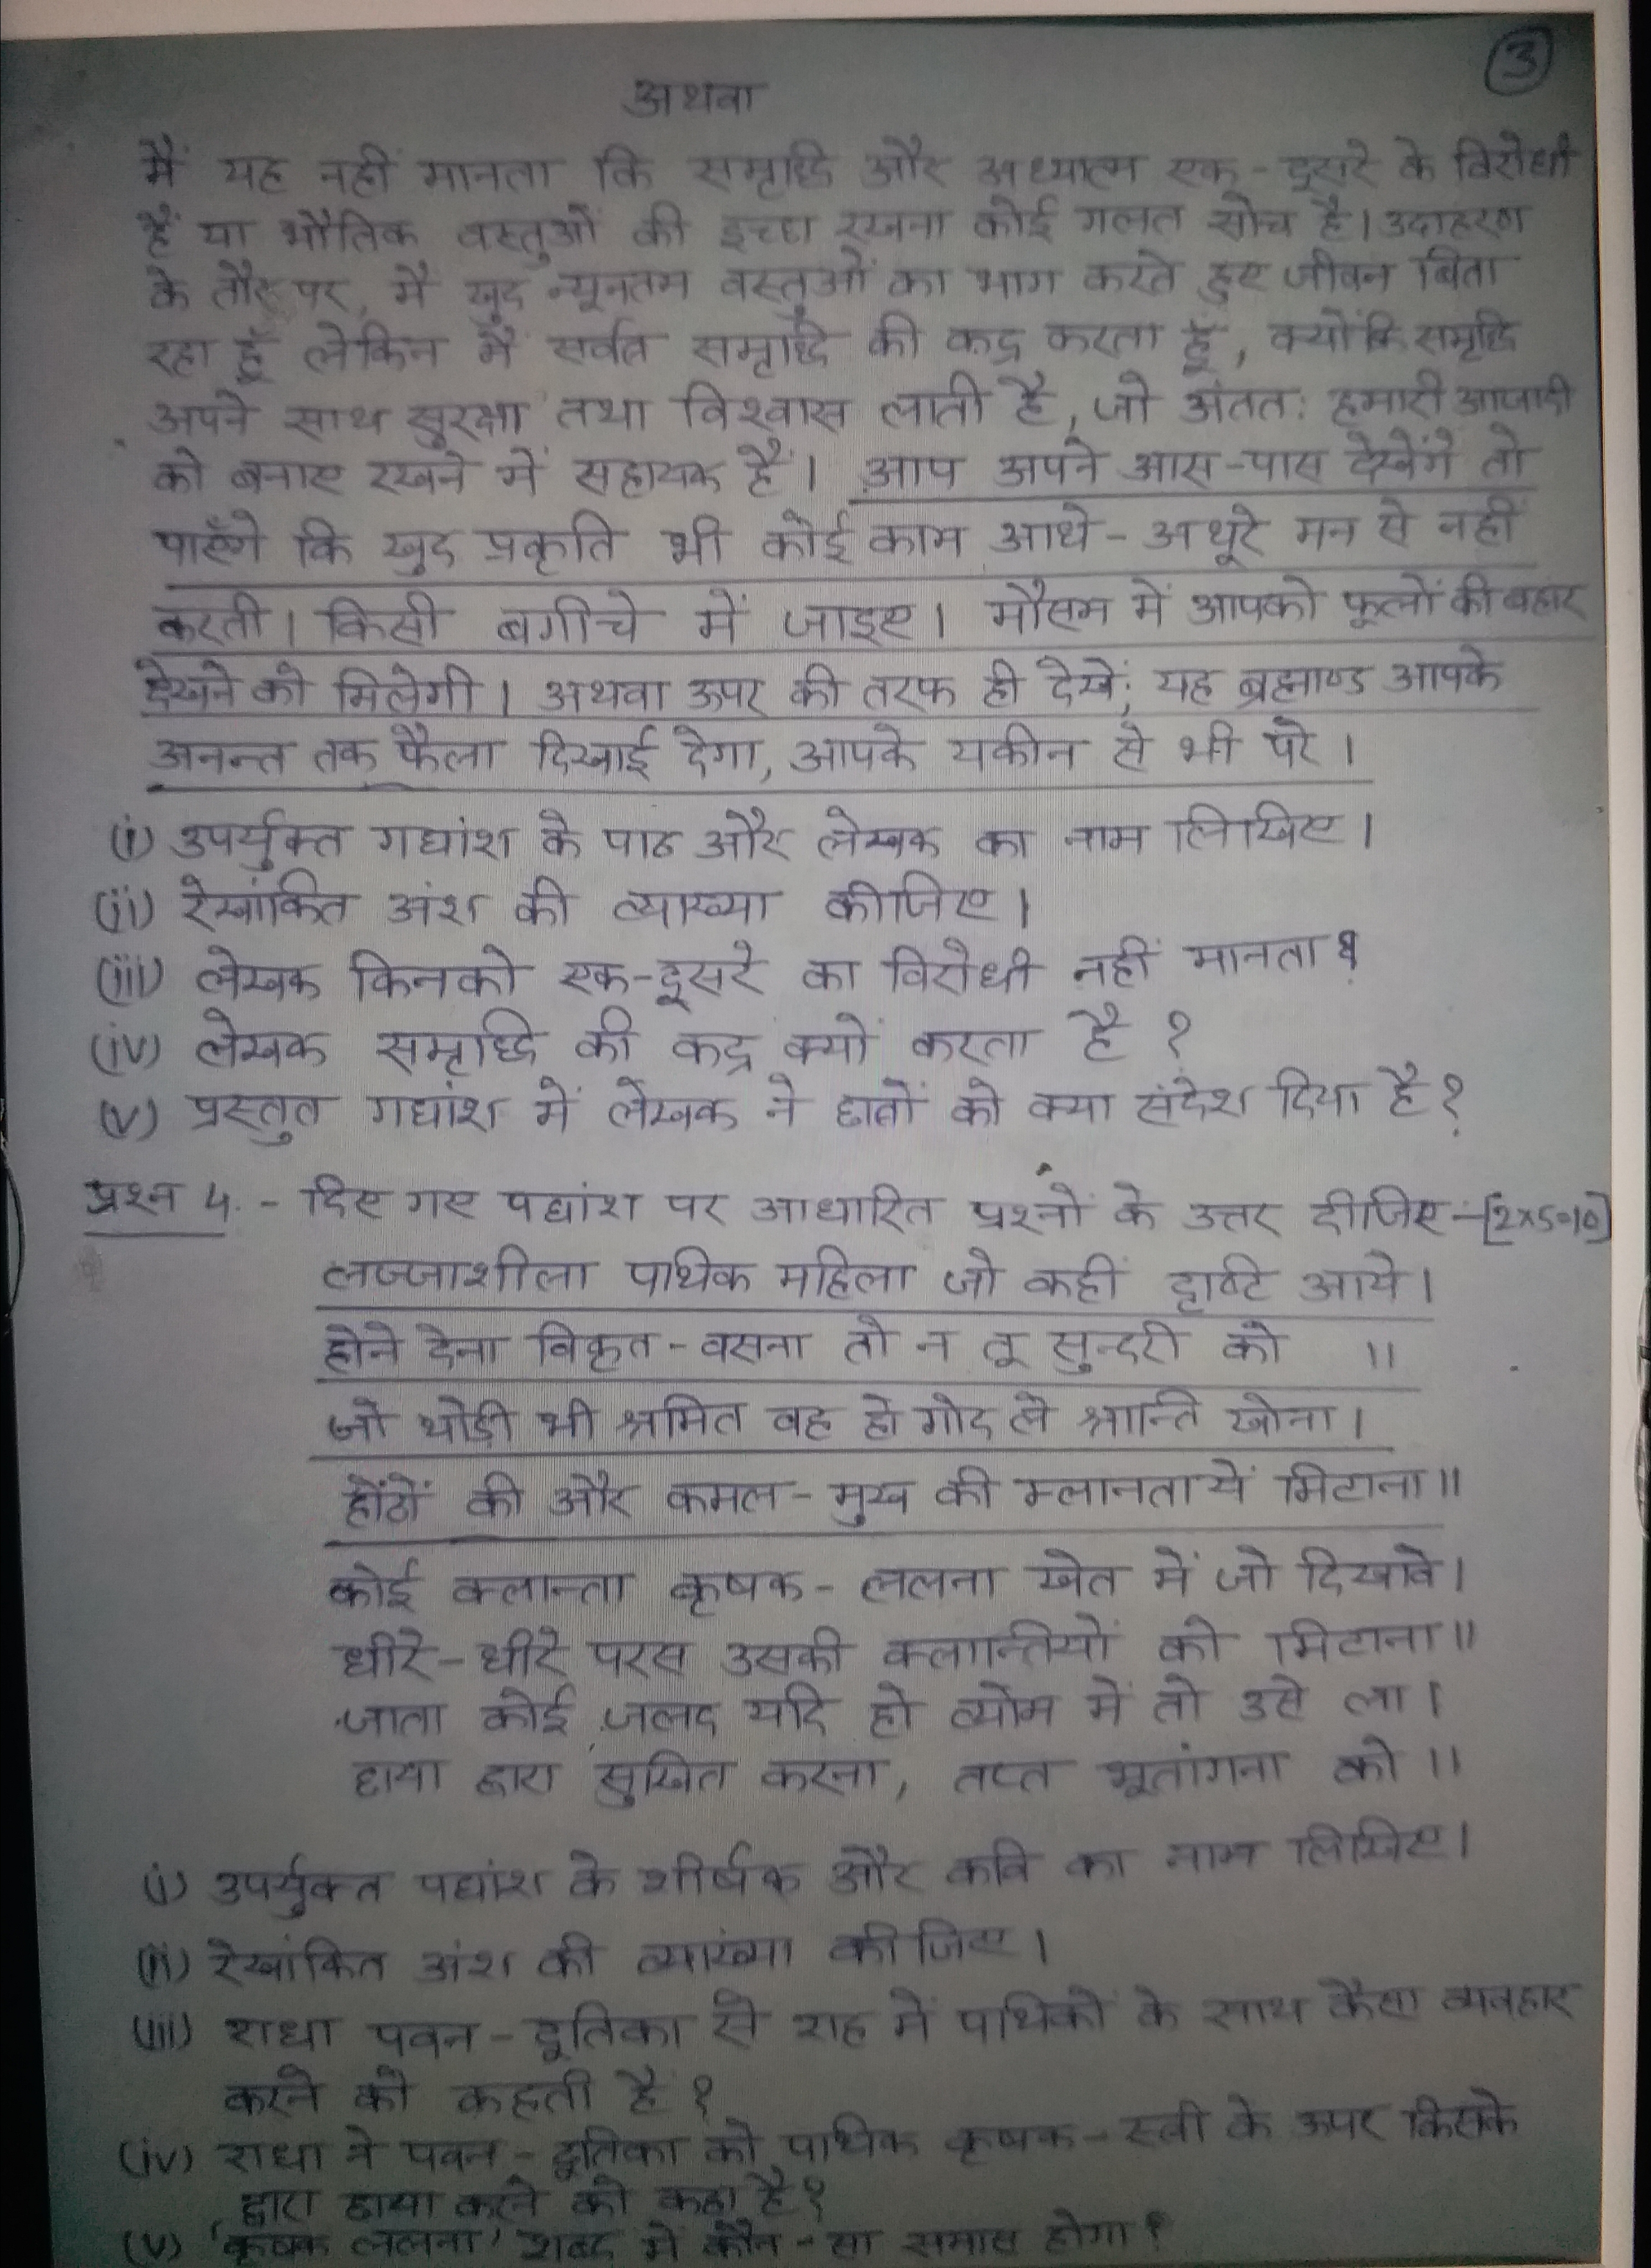 3
अथवा
मैं यह नहीं मानता कि समृद्धि और अध्यात्म एक-दूसरे के विरोधी
हैं या भौतिक वस्तुओं की इच्छा रखना कोई गलत सोच है। उदाहरण
के तौर पर, मैं खुद न्यूनतम वस्तुओं का भाग करते हुए जीवन बिता
रहा हूँ लेकिन मैं सर्वत्र समृद्धि की कद्र करता हूँ, क्योंकि समृद्धि
अपने साथ सुरक्षा तथा विश्वास लाती है, जो अंततः हमारी आजादी
को बनाए रखने में सहायक हैं। आप अपने आस-पास देखेंगे तो
पाएँगे कि खुद प्रकृति भी कोई काम आधे-अधूरे मन से नहीं
करती। किसी बगीचे में जाइए। मौसम में आपको फूलों की बहार
देखने को मिलेगी। अथवा ऊपर की तरफ ही देखें; यह ब्रह्माण्ड आपके
अनन्त तक फैला दिखाई देगा, आपके यकीन से भी परे।
(i) उपर्युक्त गद्यांश के पाठ और लेखक का नाम लिखिए।
(ii) रेखांकित अंश की व्याख्या कीजिए।
(iii) लेखक किनको एक-दूसरे का विरोधी नहीं मानता?
(iv) लेखक समृद्धि की कद्र क्यों करता है ?
(v) प्रस्तुत गद्यांश में लेखक ने छात्रों को क्या संदेश दिया है?
प्रश्न 4. - दिए गए पद्यांश पर आधारित प्रश्नों के उत्तर दीजिए-[2x5=10]
लज्जाशीला पथिक महिला जो कहीं दृष्टि आये।
होने देना विकृत-वसना तो न तू सुन्दरी को ॥
जो थोड़ी भी श्रमित वह हो गोद ले श्रान्ति खोना।
होंठों की और कमल-मुख की म्लानतायें मिटाना॥
कोई क्लान्ता कृषक-ललना खेत में जो दिखावे।
धीरे-धीरे परस उसकी क्लान्तियों को मिटाना॥
जाता कोई जलद यदि हो व्योम में तो उसे ला।
छाया द्वारा सुखित करना, तप्त भूतांगना को ॥
(i) उपर्युक्त पद्यांश के शीर्षक और कवि का नाम लिखिए।
(ii) रेखांकित अंश की व्याख्या कीजिए।
(iii) राधा पवन-दूतिका से राह में पथिकों के साथ कैसा व्यवहार
करने को कहती है ?
(iv) राधा ने पवन-दूतिका को पथिक कृषक-स्त्री के ऊपर किसके
द्वारा छाया करने को कहा है?
(v) 'कृषक ललना' शब्द में कौन-सा समास होगा?